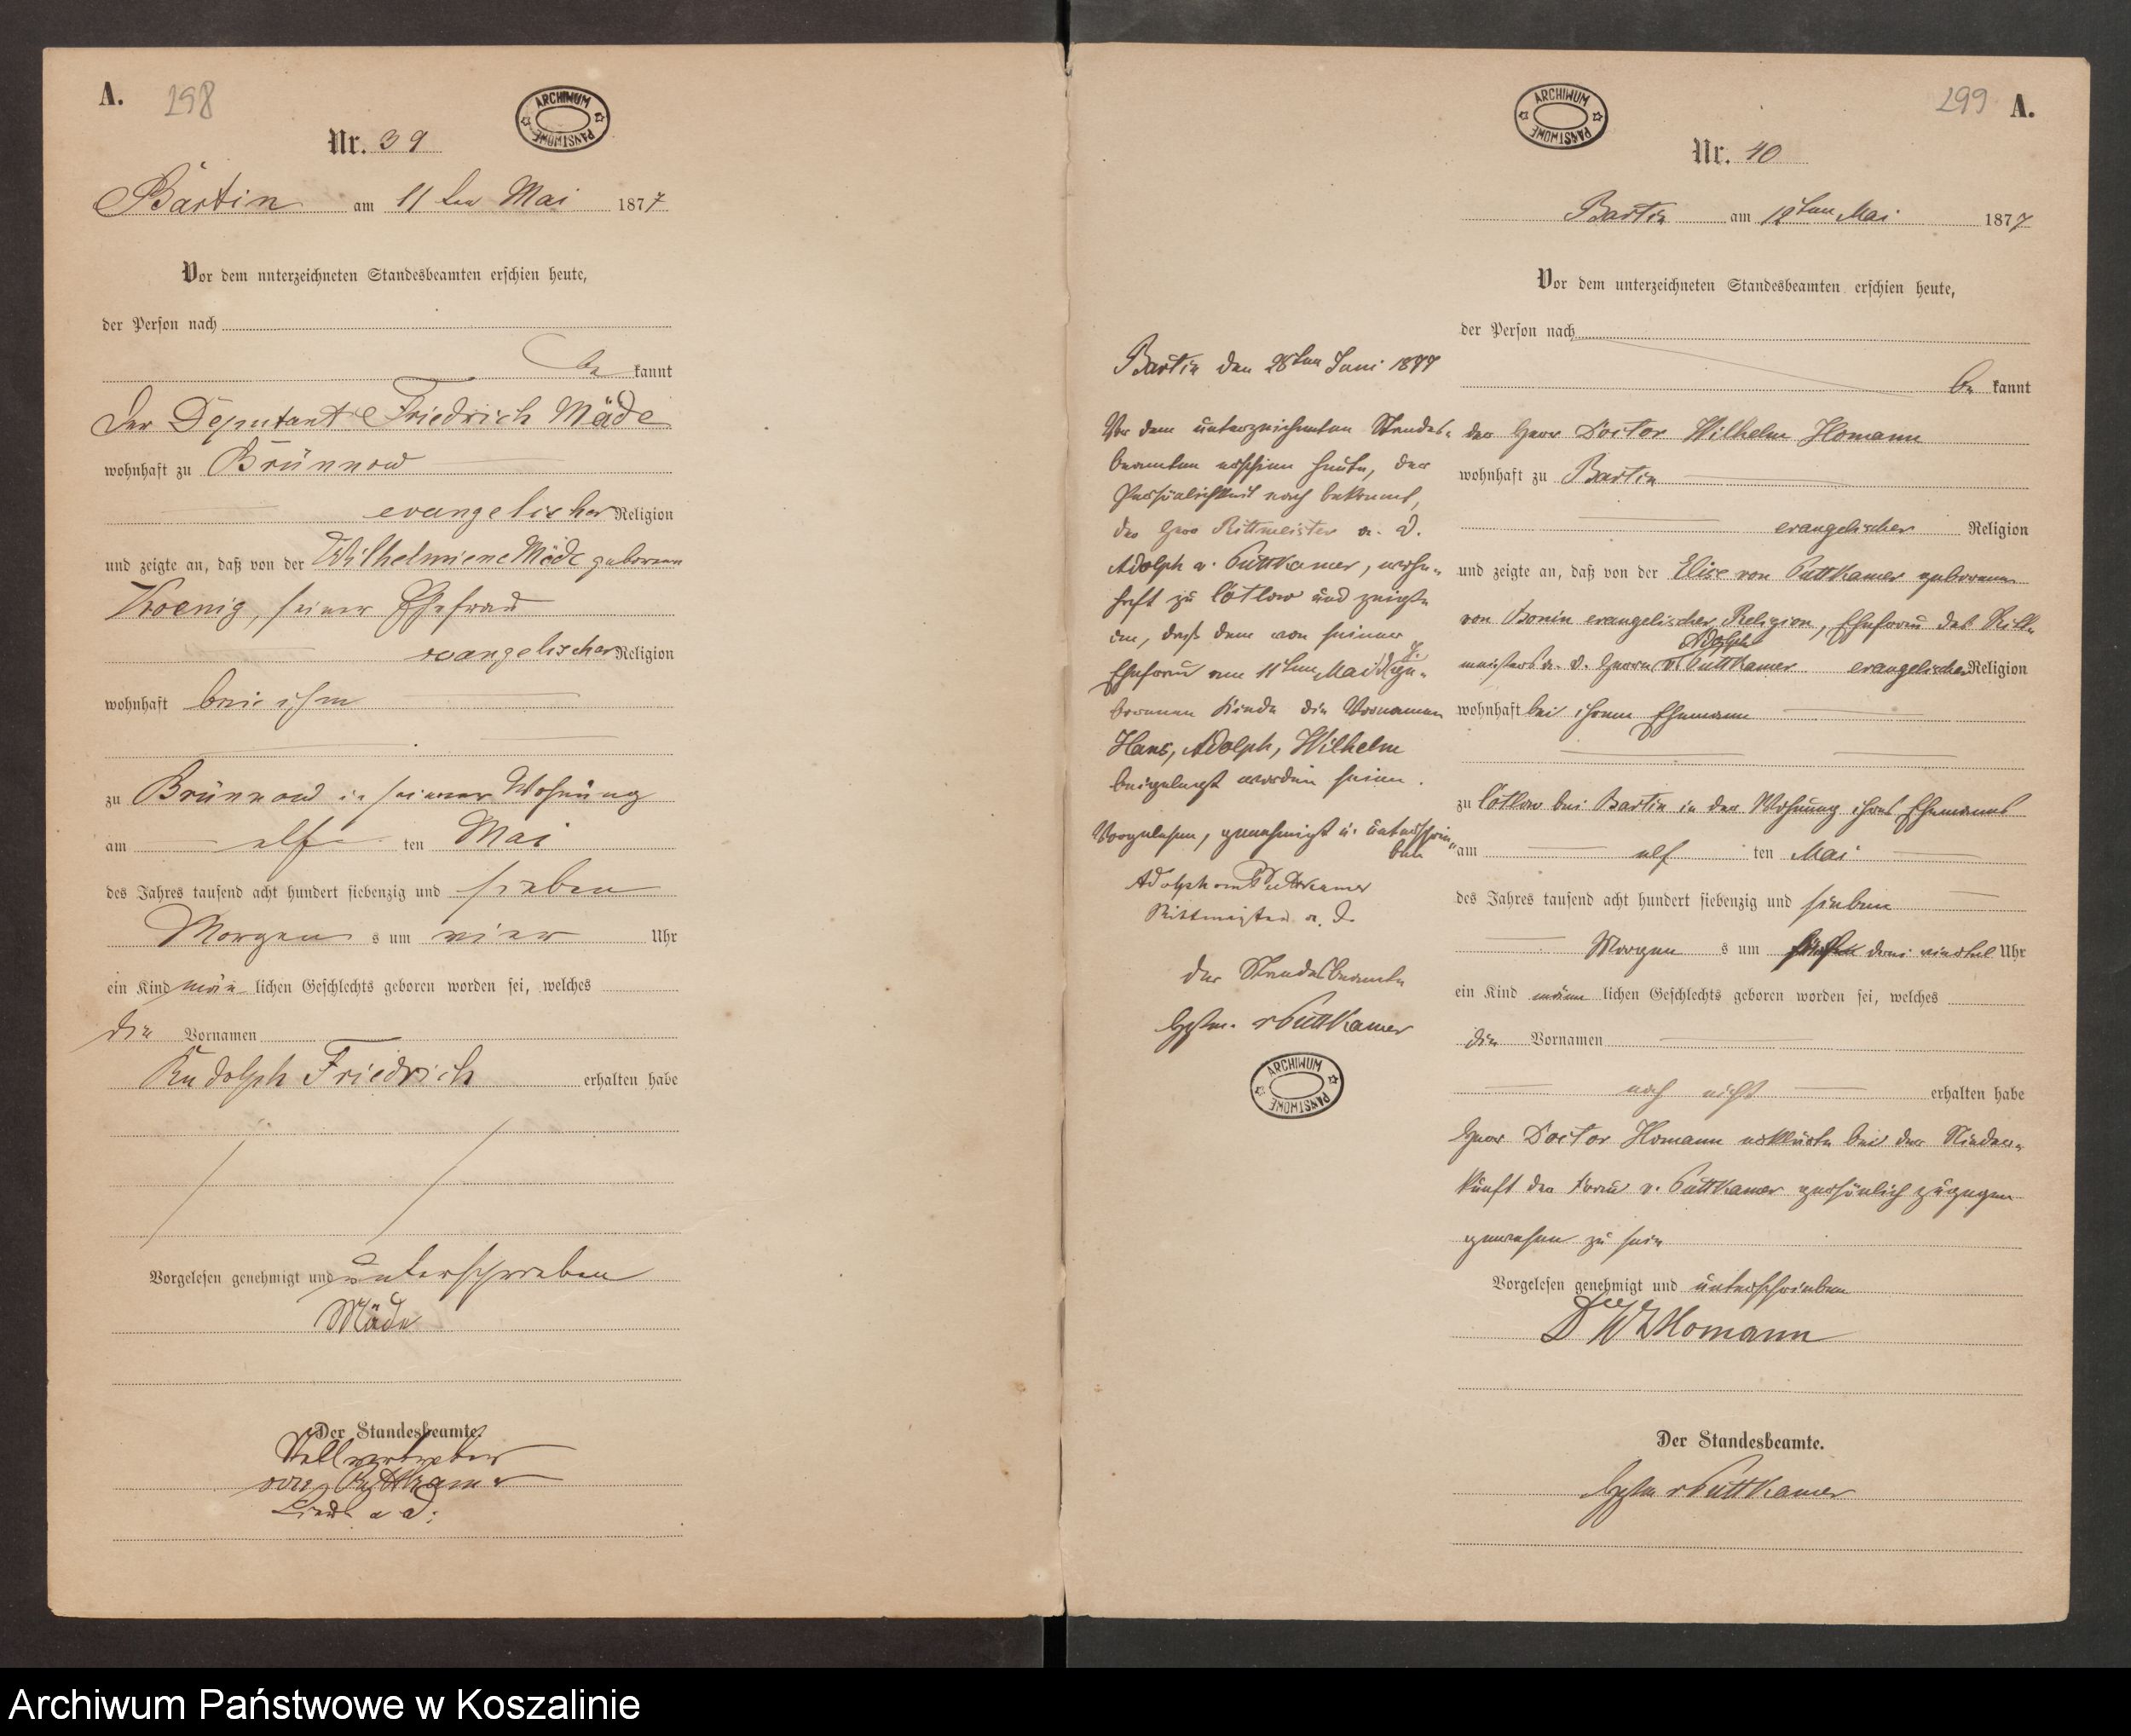 A. 298
ARCHIWUM PAŃSTWOWE
Nr. 39
Bartin am 11ten Mai 1877
Vor dem unterzeichneten Standesbeamten erschien heute,
der Person nach
be kannt
der Deputant Friedrich Mäde
wohnhaft zu Brünnow
evangelischer Religion
und zeigte an, daß von der Wilhelmiene Mäde geborene
Koenig, seiner Ehefrau
evangelischer Religion
wohnhaft bei ihm
zu Brünnow in seiner Wohnung
am elf ten Mai
des Jahres tausend acht hundert siebenzig und sieben
Morgen s um vier Uhr
ein Kind män lichen Geschlechts geboren worden sei, welches
die Vornamen
Rudolph Friedrich erhalten habe
Vorgelesen genehmigt und unterschrieben
Mäde
Der Standesbeamte.
Stellvertreter
von Puttkamer
a d.
299 A.
ARCHIWUM PAŃSTWOWE
Nr. 40
Bartin am 12ten Mai 1877
Vor dem unterzeichneten Standesbeamten erschien heute,
der Person nach
be kannt
der Herr Doctor Wilhelm Homann
wohnhaft zu Bartin
evangelischer Religion
und zeigte an, daß von der Elise von Puttkamer geborenen
von Bonin evangelischer Religion, Ehefrau des Ritt-
Adolph
meisters a. D. Herrn v. Puttkamer evangelischer Religion
wohnhaft bei ihrem Ehemann
zu Cötlow bei Bartin in der Wohnung ihres Ehemanns
am elf ten Mai
des Jahres tausend acht hundert siebenzig und sieben
Morgen s um drei viertel Uhr
ein Kind männ lichen Geschlechts geboren worden sei, welches
die Vornamen
noch nicht erhalten habe
Herr Doctor Homann erklärte bei der Nieder-
kunft der Frau v. Puttkamer persönlich zugegen
gewesen zu sein
Vorgelesen genehmigt und unterschrieben
Dr W Homann
Der Standesbeamte.
v Puttkamer
Bartin den 28ten Juni 1877
Vor dem unterzeichneten Standes-
beamten erschien heute, der
Persönlichkeit nach bekannt,
der Herr Rittmeister a. D.
Adolph v. Puttkamer, wohn-
haft zu Cötlow und zeigte
an, daß dem von seiner
Ehefrau am 11ten Mai d. J. ge-
borenen Kinde die Vornamen
Hans, Adolph, Wilhelm
beigelegt worden seien.
Vorgelesen, genehmigt u. unterschrie-
ben
Adolph von Puttkamer
Rittmeister a. D.
Der Standesbeamte
v Puttkamer
ARCHIWUM PAŃSTWOWE
Archiwum Państwowe w Koszalinie